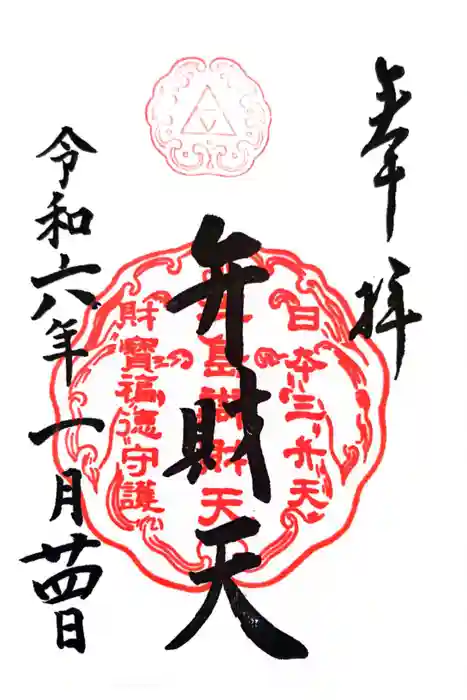 奉拝
日本三弁天
弁財天
財寶福徳守護
令和六年一月廿四日